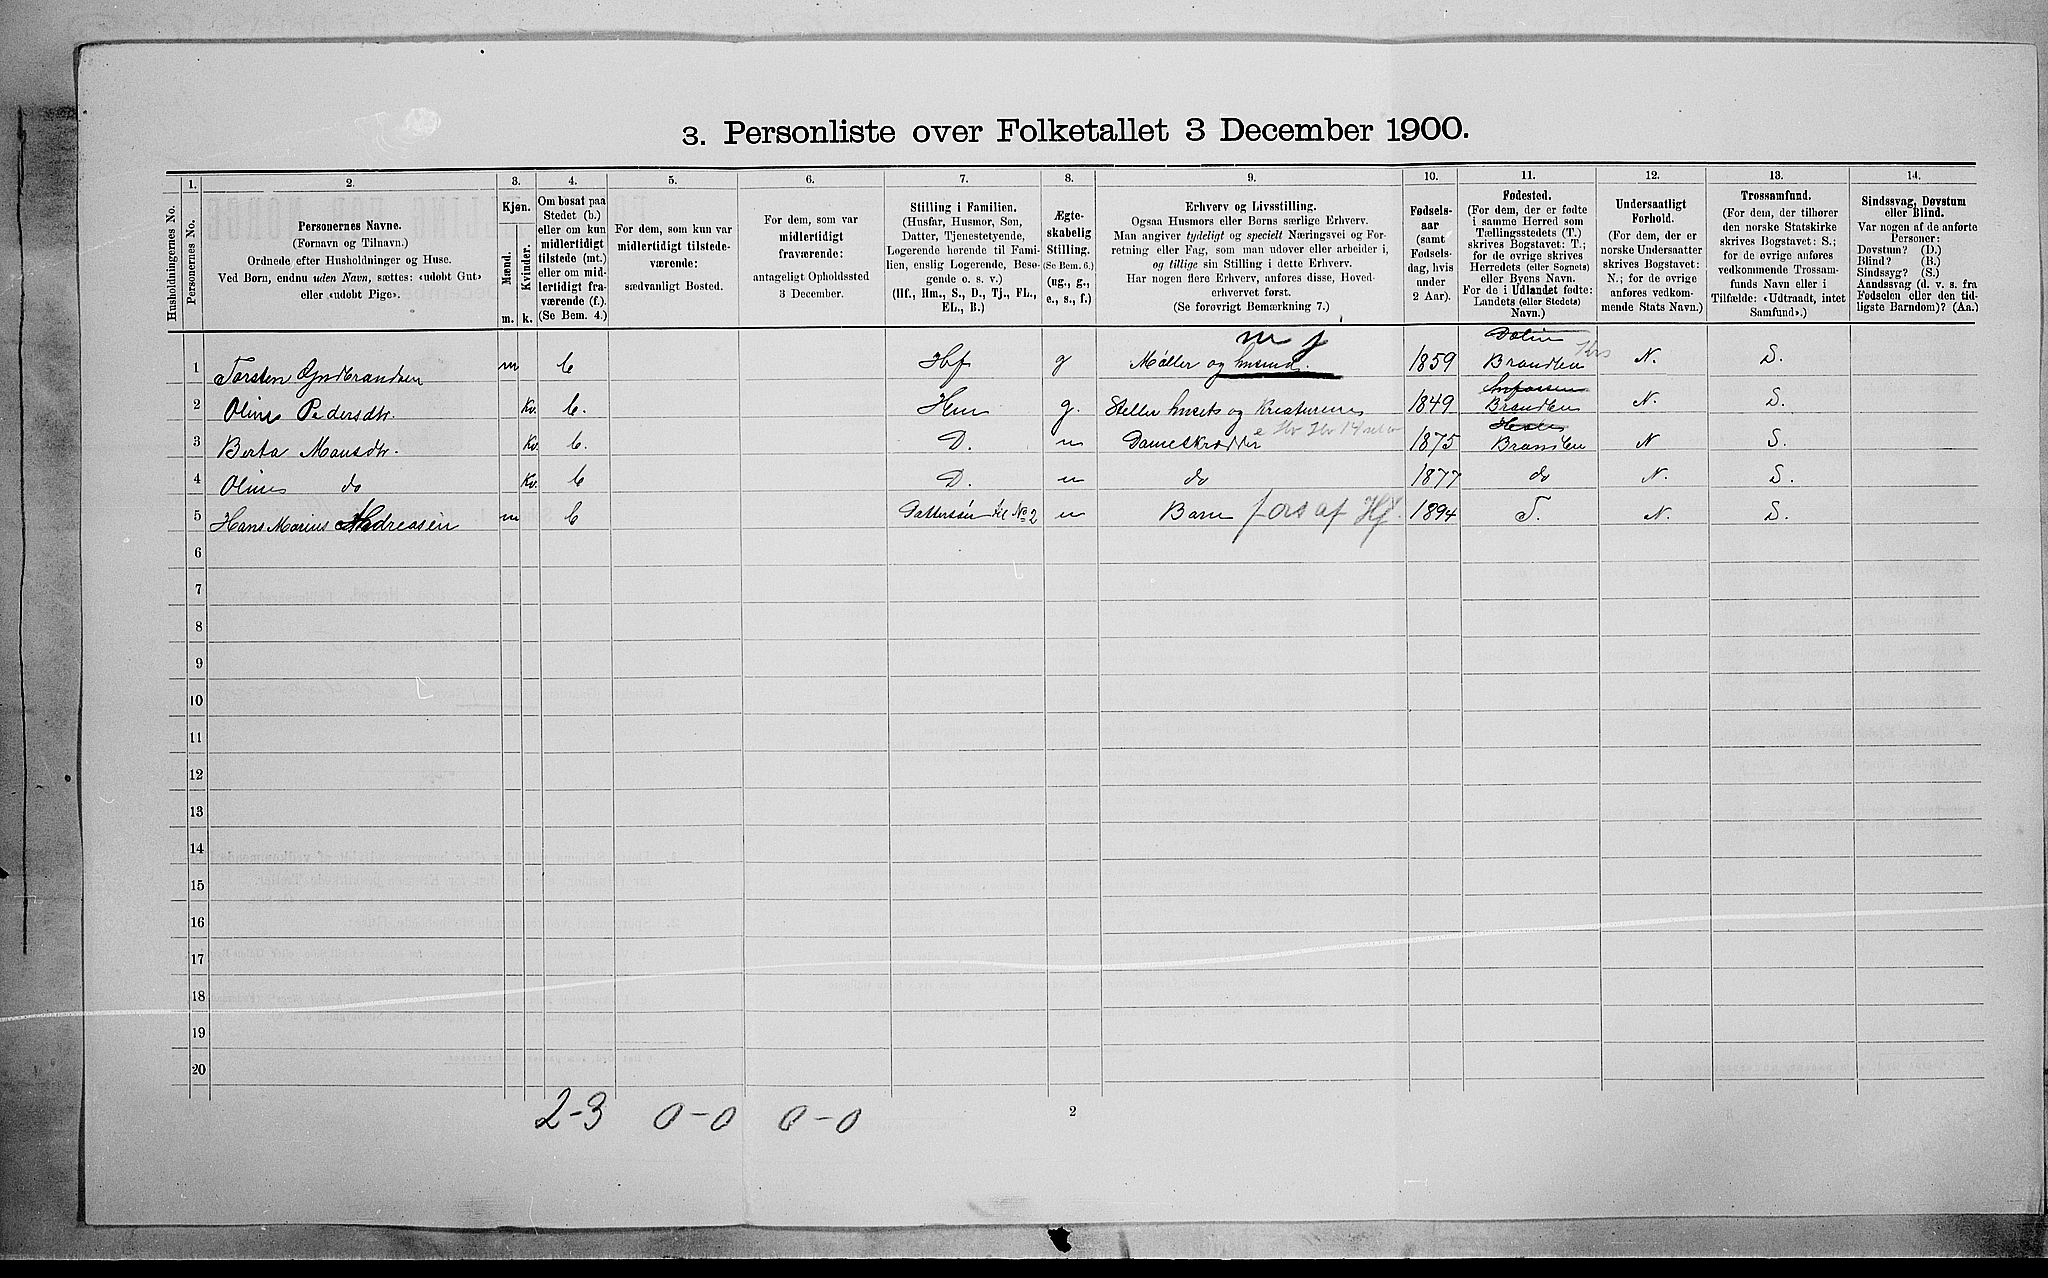 3. Personliste over Folketallet 3 December 1900.
1. 2. 3. 4. 5. 6. 7. 8. 9. 10. 11. 12. 13. 14.
Husholdningernes No.
Personernes No.
Personernes Navne.
(Fornavn og Tilnavn.)
Ordnede efter Husholdninger og Huse.
Ved Børn, endnu uden Navn, sættes: «udøbt Gut»
eller «udøbt Pige».
Kjøn.
Mænd.
Kvinder.
m. k.
Om bosat paa
Stedet (b.)
eller om kun
midlertidigt
tilstede (mt.)
eller om mid-
lertidigt fra-
værende (f.).
(Se Bem. 4.)
For dem, som kun var
midlertidigt tilstede-
værende:
sædvanligt Bosted.
For dem, som var
midlertidigt
fraværende:
antageligt Opholdssted
3 December.
Stilling i Familien.
(Husfar, Husmor, Søn,
Datter, Tjenestetyende,
Logerende hørende til Fami-
lien, enslig Logerende, Besø-
gende o. s. v.)
(Hf., Hm., S., D., Tj., FL.,
EL., B.)
Ægte-
skabelig
Stilling.
(Se Bem. 6.)
(ug., g.,
e., s., f.)
Erhverv og Livsstilling.
Ogsaa Husmors eller Børns særlige Erhverv.
Man angiver tydeligt og specielt Næringsvei og For-
retning eller Fag, som man udøver eller arbeider i,
og tillige sin Stilling i dette Erhverv.
Har nogen flere Erhverv, anføres disse, Hoved-
erhvervet først.
(Se forøvrigt Bemærkning 7.)
Fødsels-
aar
(samt
Fødsels-
dag, hvis
under
2 Aar).
Fødested.
(For dem, der er fødte
i samme Herred som
Tællingsstedets (T.)
skrives Bogstavet: T.;
for de øvrige skrives
Herredets (eller Sognets)
eller Byens Navn.
For de i Udlandet fødte:
Landets (eller Stedets)
Navn.)
Undersaatligt
Forhold.
(For dem, der er
norske Undersaatter
skrives Bogstavet:
N.; for de øvrige
anføres vedkom-
mende Stats Navn.)
Trossamfund.
(For dem, der tilhører
den norske Statskirke
skrives Bogstavet: S.;
for de øvrige anføres
vedkommende Trossam-
funds Navn eller i
Tilfælde: «Udtraadt, intet
Samfund».)
Sindssvag, Døvstum
eller Blind.
Var nogen af de anførte
Personer:
Døvstum? (D.)
Blind? (B.)
Sindssyg? (S.)
Aandssvag (d. v. s. fra
Fødselen eller den tid-
ligste Barndom)? (Aa.)
m j
1 Torsten Gudbrandsen m b Hf g Møller og husmd. 1859 Brandbu N. S.
2 Oline Pedersdtr. Kv. b. Hm g. Steller husets og Kreaturene 1849 Brandbu N. S.
3 Berta Mansdtr. Kv. b. D. u Dameskrædder 1875 Brandbu N S.
4 Oline do Kv. b D. u do 1877 do N. S.
5 Hans Marius Andreasen m b Dattersøn til No 2 u Barn fors af Hf. 1894 T. N. S.
6
7
8
9
10
11
12
13
14
15
16
17
18
19
20
2-3 0-0 0-0
2